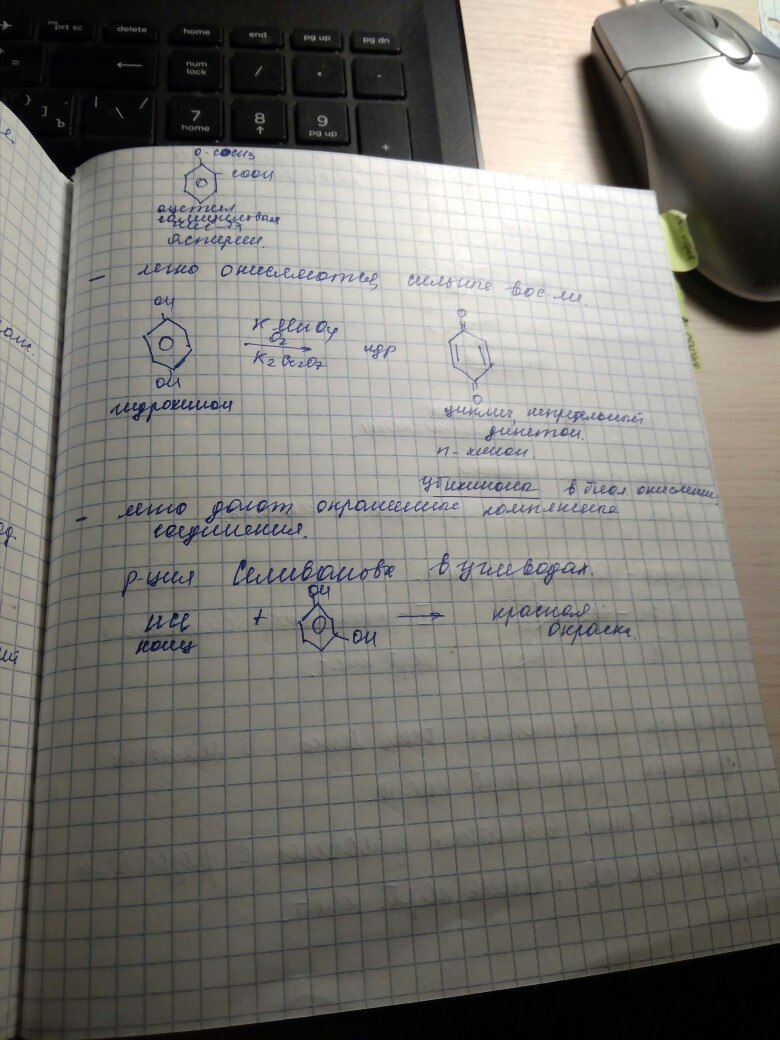 prt sc
delete
home
end
pg up
pg dn
=
←
num lock
/
•
-
} ] Ъ
| \
7 home
8 ↑
9 pg up
+
O-COCH3
COOH
ацетил
салициловая
кис-та
Аспирин.
- легко окисляются, сильные вос-ли.
OH
OH
KMnO4
O2
K2Cr2O7
идр
O
O
гидрохинон
циклич. непредельный
дикетон.
п-хинон
убихиноны в биол. окислении
- легко дают окрашенные комплексные
соединения.
р-ция Селиванова в углеводах.
HCl
конц
+
OH
OH
→
красная
окраска.